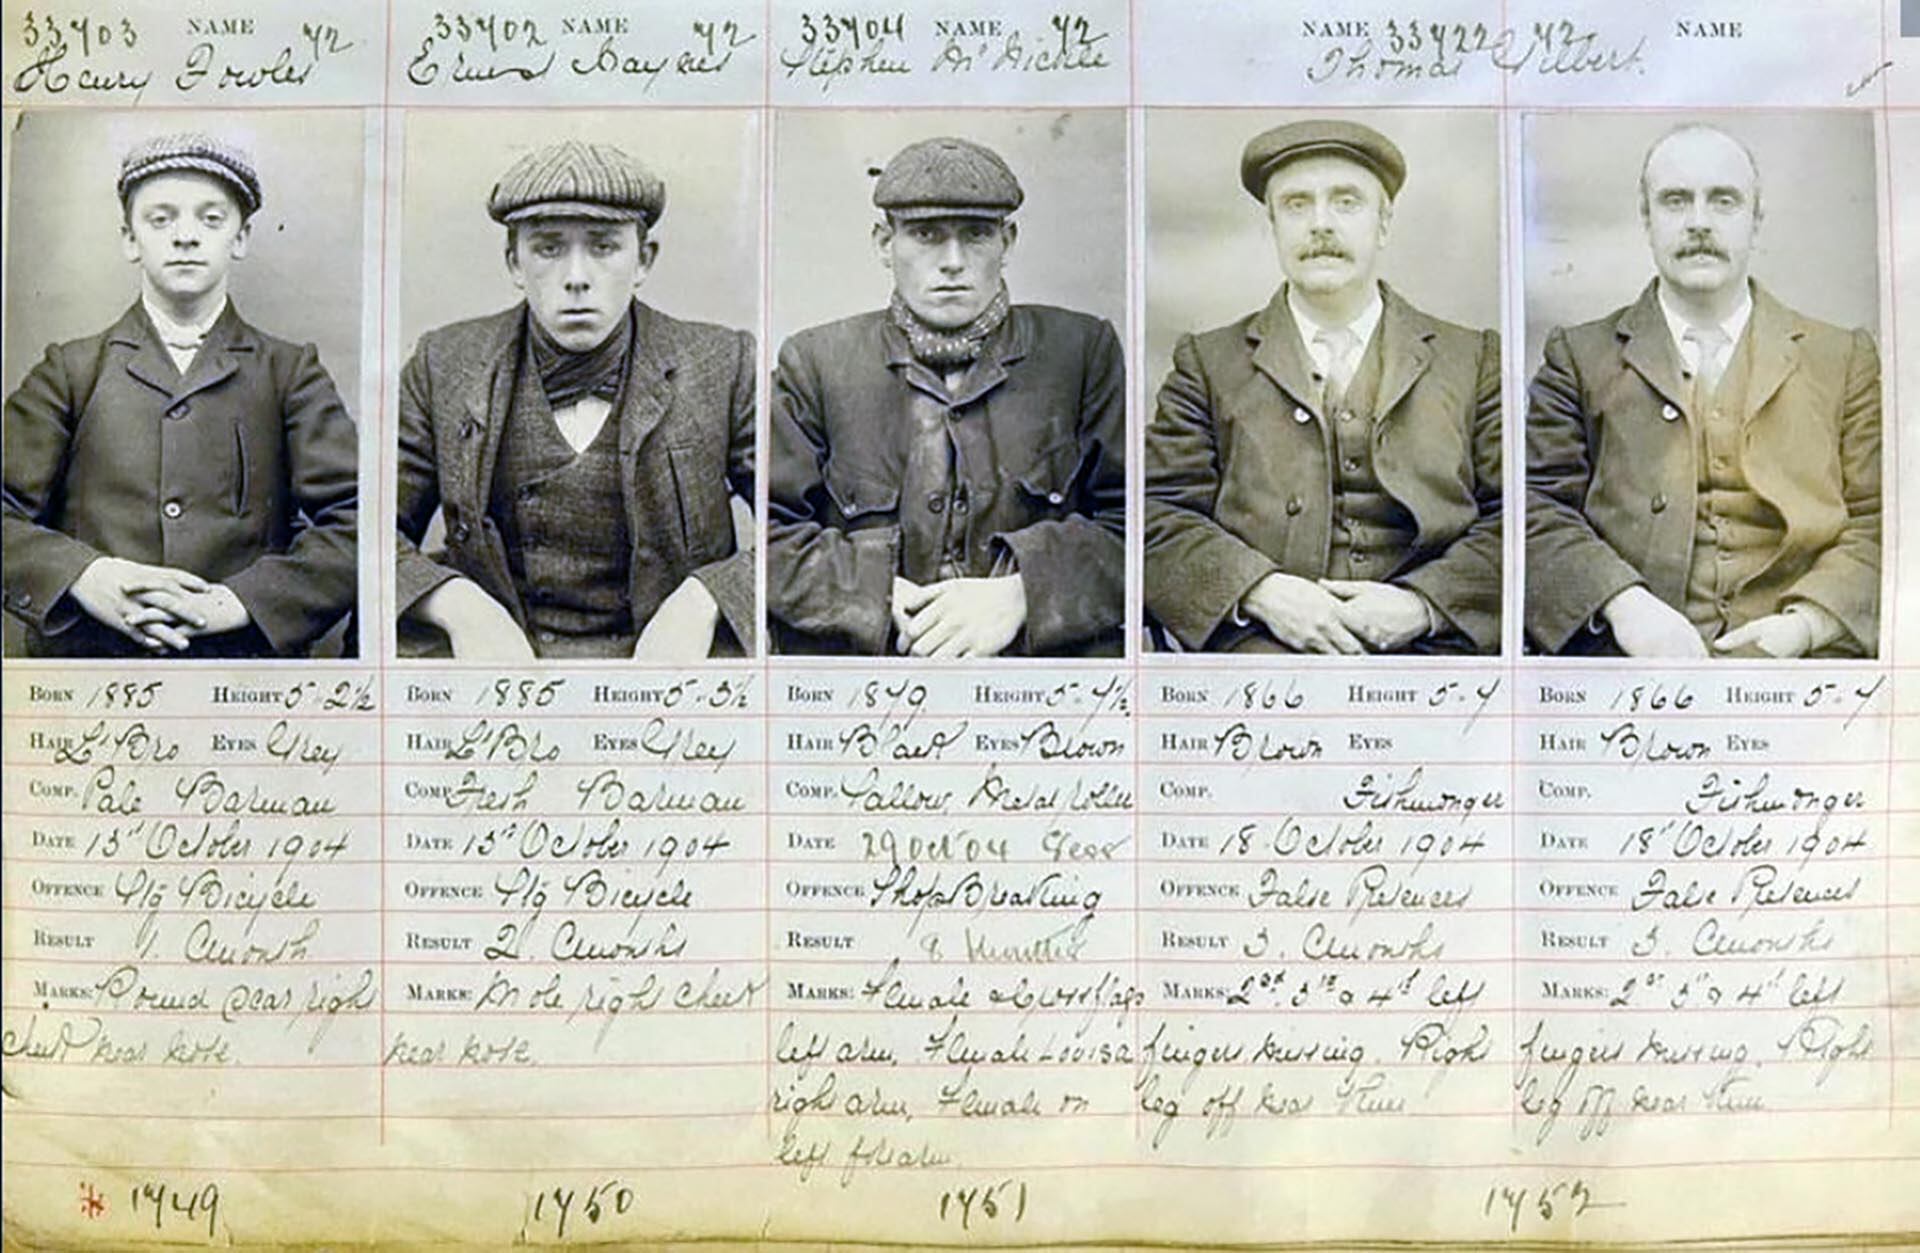 33703 NAME 72
Henry Fowler
33702 NAME 72
Ernest Haynes
33704 NAME 72
Stephen
NAME 33722 72
Thomas Gilbert.
NAME
BORN 1885 HEIGHT 5-2½
HAIR L'Bro EYES Grey
COMP. Pale Barman
DATE 13th October 1904
OFFENCE Stg Bicycle
RESULT 1. Cmonth
MARKS: Round Scar right
cheek near nose.
* 1749
BORN 1885 HEIGHT 5-3½
HAIR L'Bro EYES Grey
COMP. Fresh Barman
DATE 13th October 1904
OFFENCE Stg Bicycle
RESULT 2. Cmonths
MARKS: Mole right cheek
near nose.
1750
BORN 1879 HEIGHT 5-7½
HAIR Black EYES Brown
COMP. Sallow, Metal roller
DATE 29 Oct 04 Sess
OFFENCE ShopBreaking
RESULT months
MARKS: Female & Cross flags
left arm, Female Louisa
right arm, Female on
left forearm.
1751
BORN 1866 HEIGHT 5-7
HAIR Brown EYES
COMP. Fishmonger
DATE 18 October 1904
OFFENCE False Pretences
RESULT 3. Cmonths
MARKS: 2nd 3rd & 4th left
fingers missing. Right
leg off near knee
BORN 1866 HEIGHT 5-7
HAIR Brown EYES
COMP. Fishmonger
DATE 18th October 1904
OFFENCE False Pretences
RESULT 3. Cmonths
MARKS: 2nd 3rd & 4th left
fingers missing. Right
leg off near knee
1752